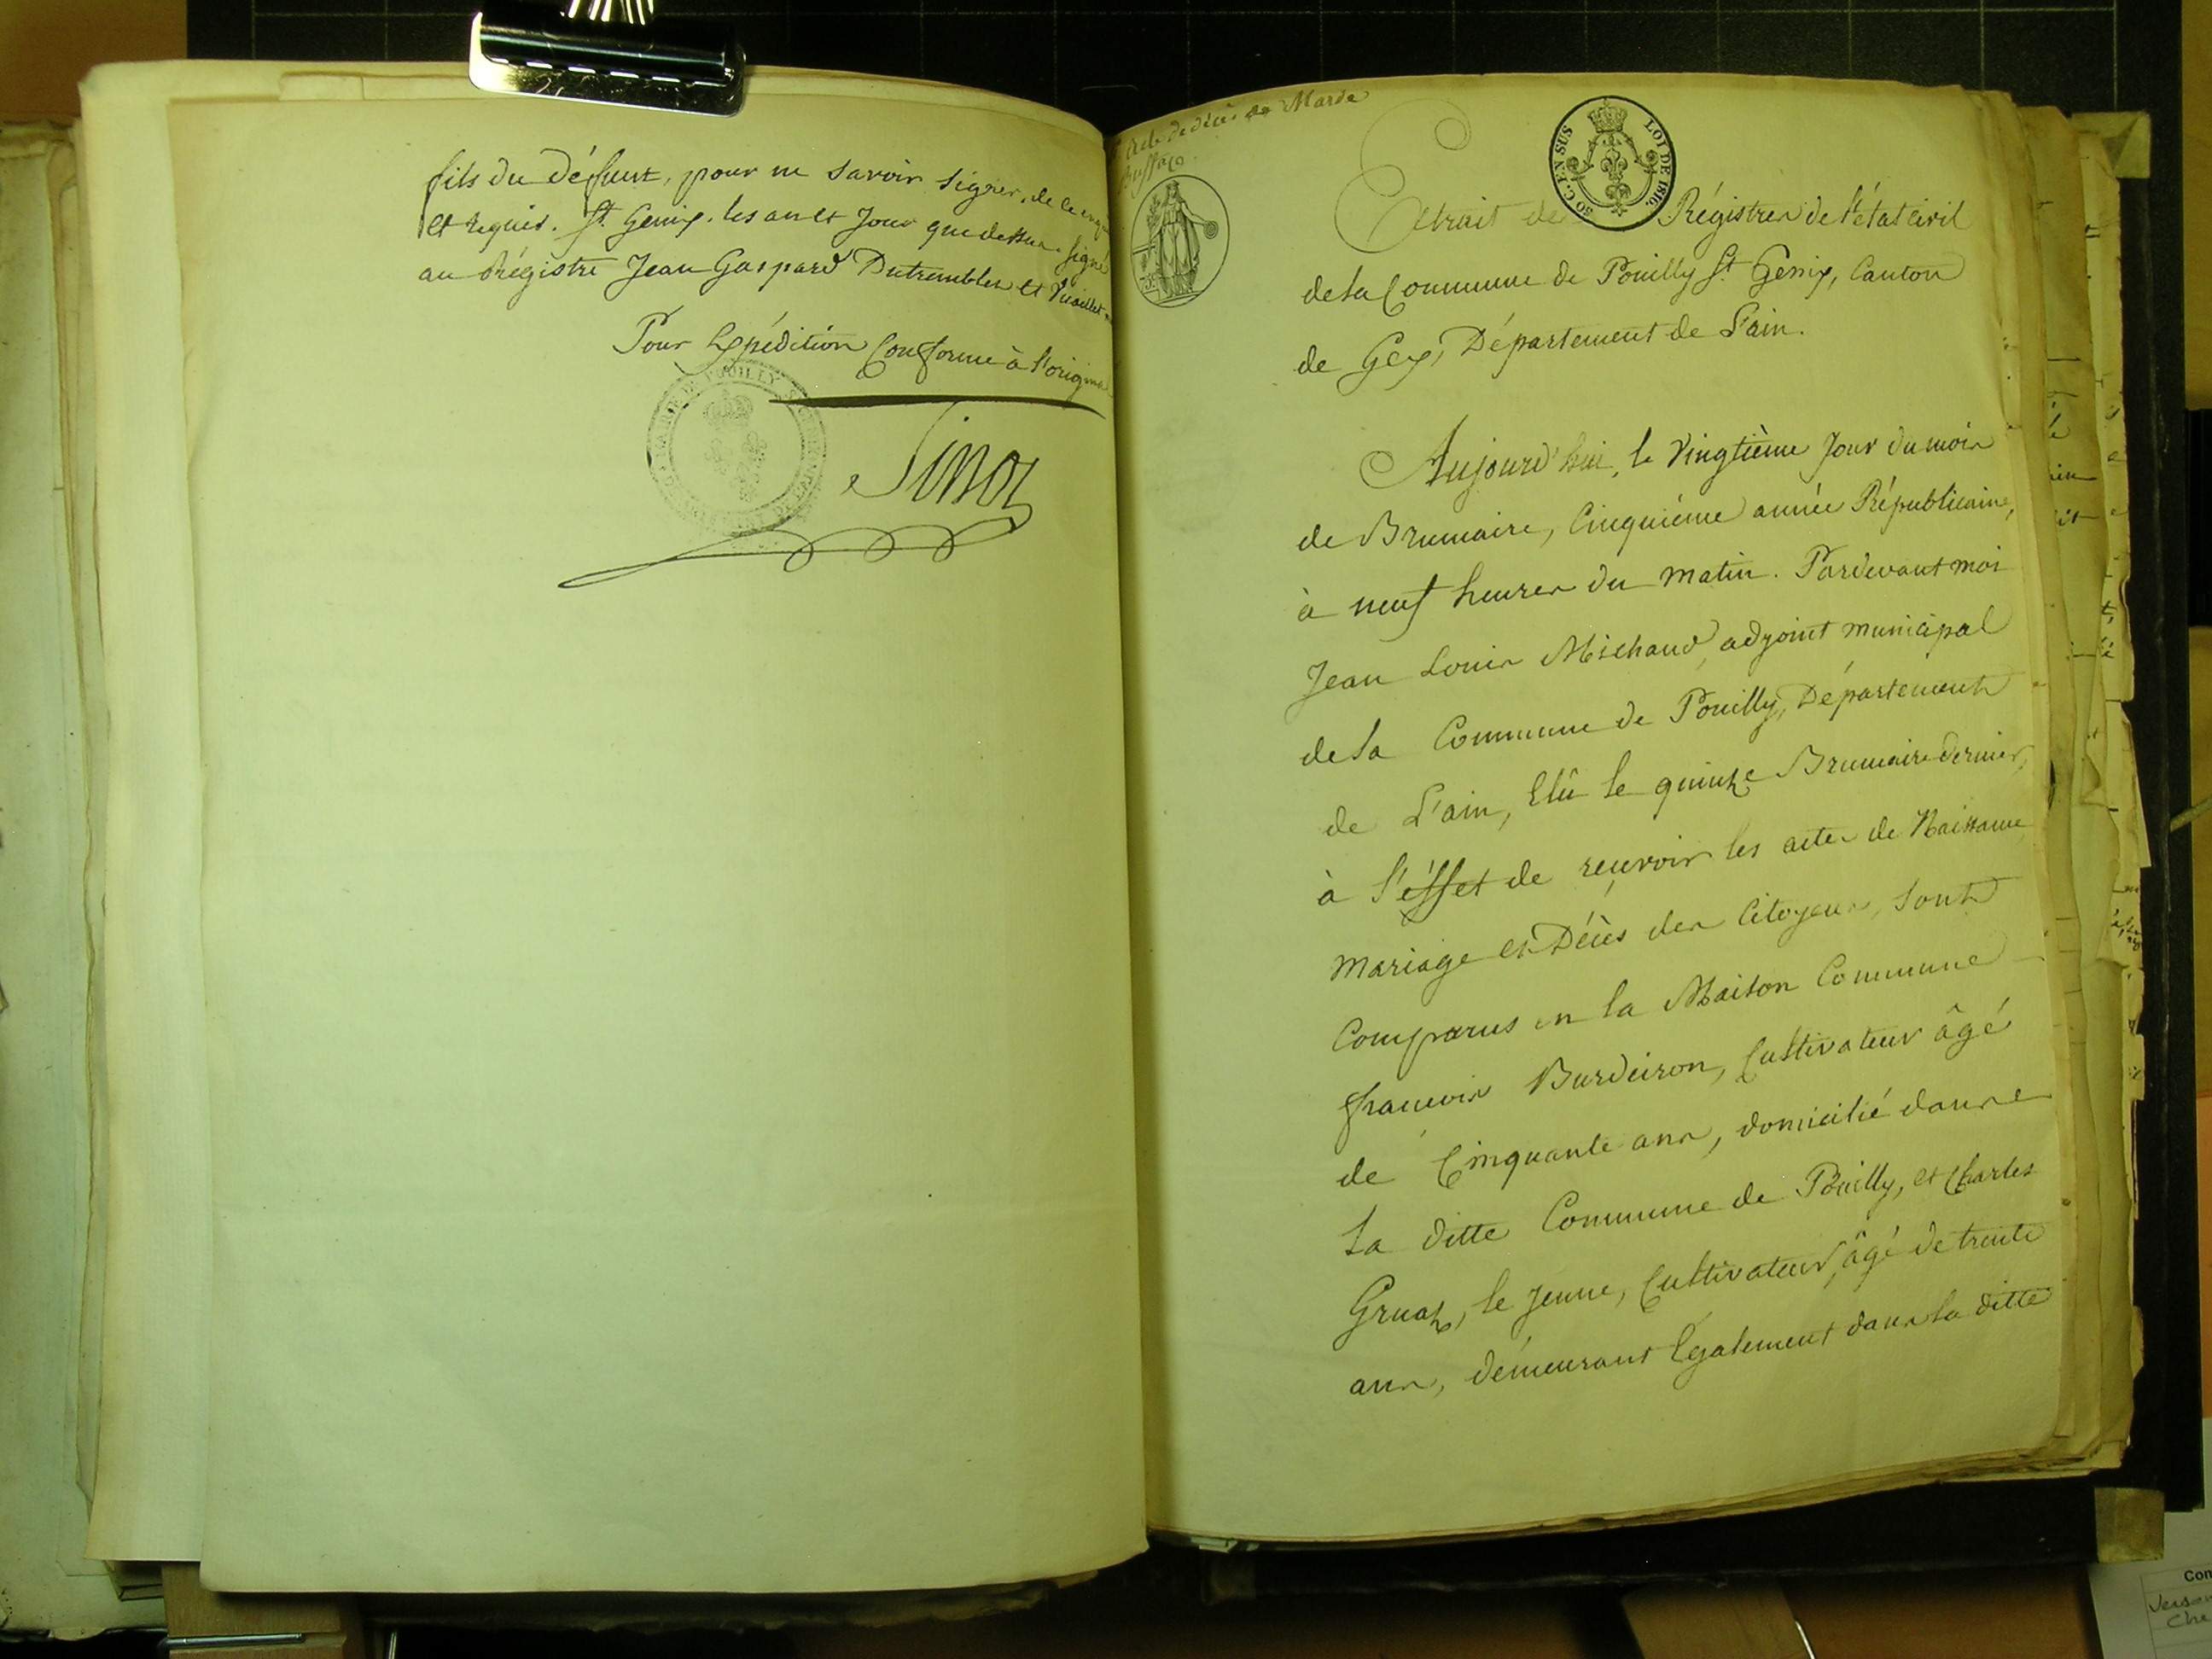 fils du défunt, pour ne savoir signer, de ce
et requis. St. Genix. les an et Jour que dessus. signé
au Régistre Jean Gaspard Dutrembley et
Pour Expédition Conforme à l'origin
MAIRIE DE POUILLY
Acte de décès de Marde
EN SUS
LOI DE 1816.
50 C.
Extrait de Régistres de l'état Civil
de la Commune de Pouilly St. Genix, Canton
de Gex, Département de L'ain.
Aujourd'hui, le Vingtième Jour du mois
de Brumaire, Cinquième année Républicaine,
à neuf heures du matin. Pardevant moi
Jean Louis Michaud, adjoint municipal
de la Commune de Pouilly, Département
de L'ain, Elû le quinze Brumaire dernier,
à l'éffet de reçevoir les actes de Naissance
mariage et Décès des Citoyens, sont
Comparus en la Maison Commune
françois Burdeiron, Cultivateur âgé
de Cinquante ans, domicilié dans
la ditte Commune de Pouilly, et Charles
Gruaz, le Jeune, Cultivateur, âgé de trente
ans, démeurant Également dans la ditte